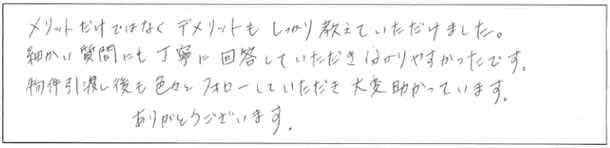 メリットだけではなくデメリットもしっかり教えていただけました。
細かい質問にも丁寧に回答していただき分かりやすかったです。
物件引渡し後も色々とフォローしていただき大変助かっています。
ありがとうございます。